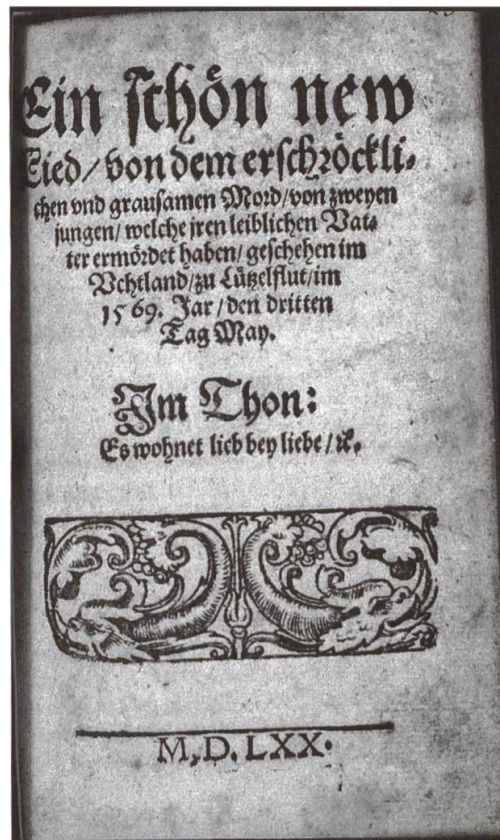 Ein schön new
Lied/ von dem erschröckli-
chen vnd grausamen Mord/ von zweyen
jungen/ welche jren leiblichen Vat-
ter ermördet haben/ geschehen im
Vchtland/ zu Lützelflut/ im
1569. Jar/ den dritten
Tag May.
Im Thon:
Es wohnet lieb bey liebe/ ꝛc.
M.D.LXX.